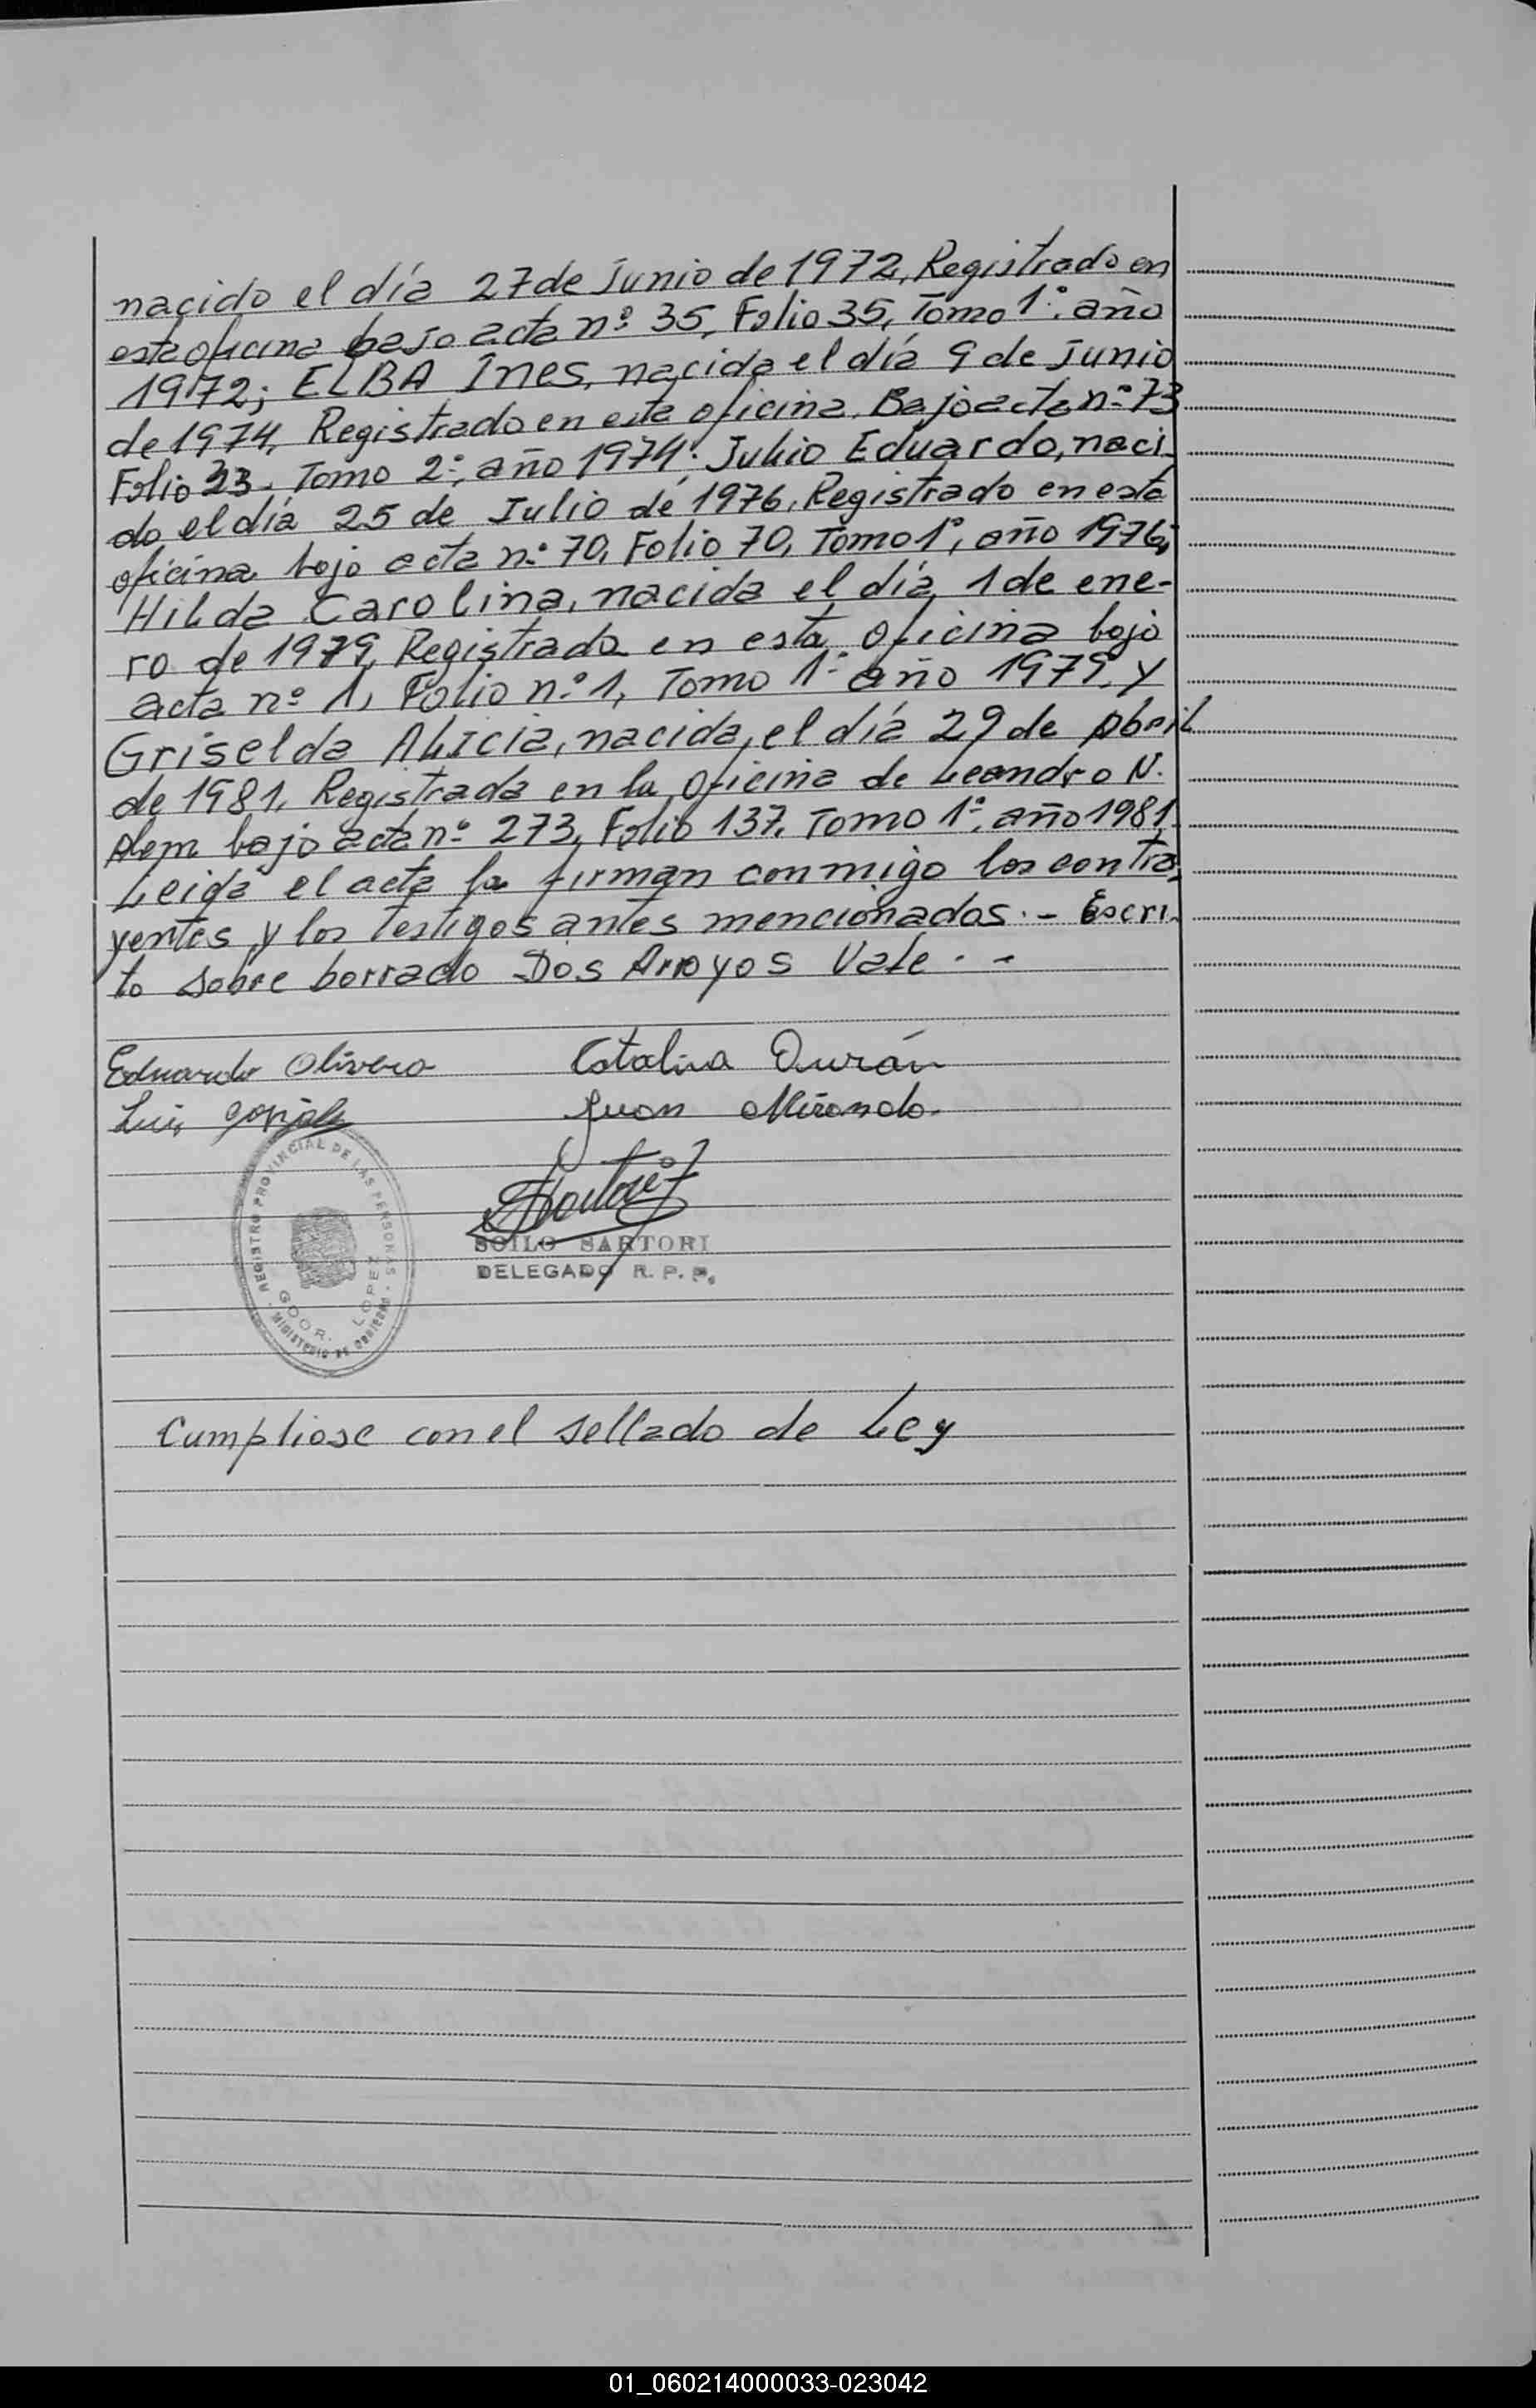 nacido el día 27 de Junio de 1972, Registrado en
esta oficina bajo acta nº 35, Folio 35, Tomo 1º. año
1972; ELBA Ines, nacida el día 9 de Junio
de 1974, Registrado en esta oficina Bajo acta nº 73
Folio 23. Tomo 2º; año 1974. Julio Eduardo, naci
do el día 25 de Julio de 1976, Registrado en esta
oficina bajo acta nº 70, Folio 70, Tomo 1º, año 1976;
Hilda Carolina, nacida el día 1 de ene-
ro de 1979, Registrada en esta oficina bajo
acta nº 1, Folio nº 1, Tomo 1º año 1979, y
Griselda Alicia, nacida, el día 29 de Abril
de 1981, Registrada en la oficina de Leandro N.
Alem bajo acta nº 273, Folio 137, Tomo 1º, año 1981.
Leida el acta la firman conmigo los contra
yentes y los testigos antes mencionados.- Escri
to sobre borrado Dos Arroyos Vale.-
Eduardo Olivera Catalina Durán
Luis Juan Miranda.
REGISTRO PROVINCIAL DE LAS PERSONAS
GDOR. LOPEZ
MINISTERIO DE GOBIERNO
SOILO SARTORI
DELEGADO R. P. P.
Cumpliose con el sellado de Ley
01_060214000033-023042